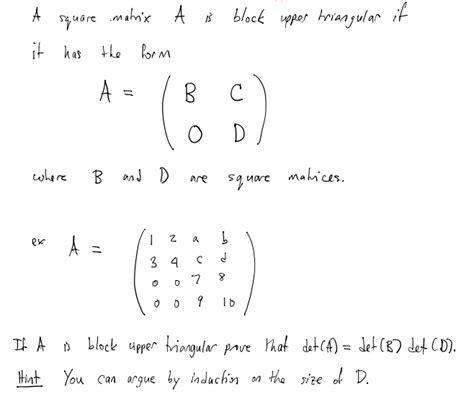 A square matrix A is block upper triangular if
it has the form
A = ( B C
0 D )
where B and D are square matrices.
ex A = ( 1 2 a b
3 4 c d
0 0 7 8
0 0 9 10 )
If A is block upper triangular prove that det(A) = det(B) det(D).
Hint You can argue by induction on the size of D.